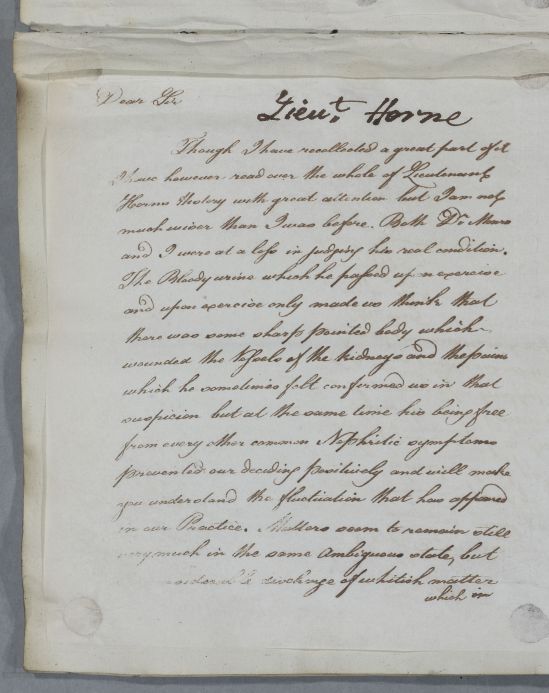 Dear Sir
Lieut. Horne
Though I have recollected a great part of it
I have however read over the whole of Lieutenant
Horns history with great attention but I am not
much wiser than I was before. Both Dr Monro
and I were at a loss in judging his real condition.
The Bloody urine which he passed upon exercise
and upon exercise only made us think that
there was some sharp pointed body which
wounded the Vessels of the kidneys and the pain
which he sometimes felt confirmed us in that
suspicion but at the same time his being free
from every other common Nephritic symptoms
prevented our deciding positively and will make
you understand the fluctuation that has appeared
in our Practice. Matters seem to remain still
very much in the same ambiguous state, but
discharge of whitish matter
which in